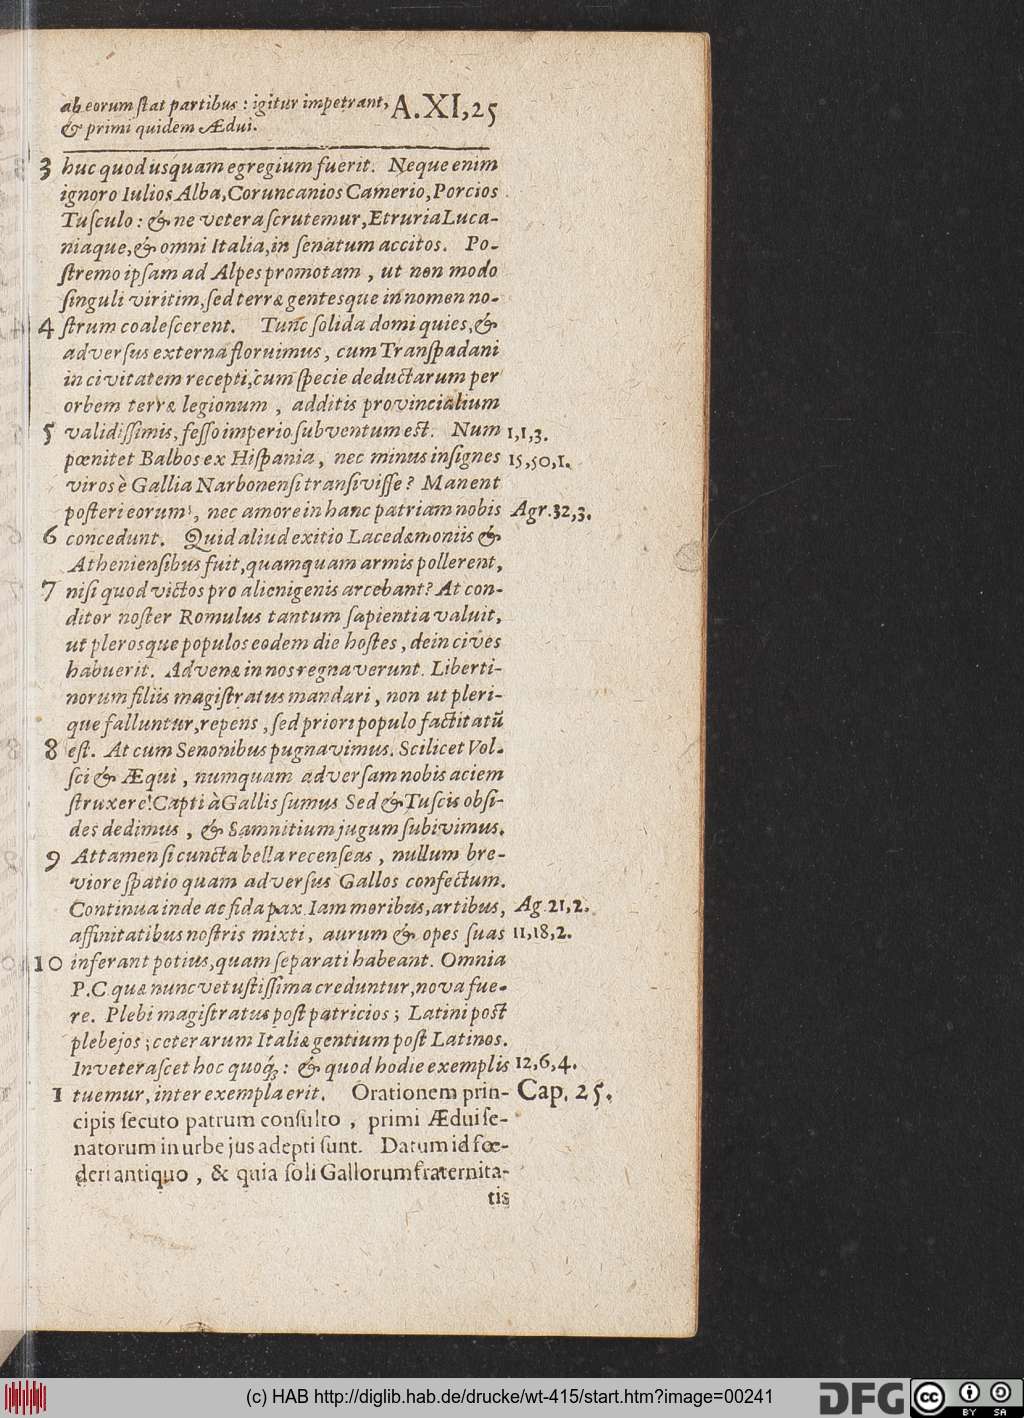 ab eorum ſtat partibus : igitur impetrant,
& primi quidem Ædui.
A.XI,25
3 huc quod usquam egregium fuerit. Neque enim
ignoro Iulios Alba, Coruncanios Camerio, Porcios
Tuſculo : & ne vetera ſcrutemur, Etruria Luca-
niaque, & omni Italia, in ſenatum accitos. Po-
ſtremo ipſam ad Alpes promotam, ut non modo
ſinguli viritim, ſed terræ gentesque in nomen no-
4 ſtrum coaleſcerent. Tunc ſolida domi quies, &
adverſus externa floruimus, cum Tranſpadani
in civitatem recepti, cum ſpecie deductarum per
orbem terræ legionum, additis provincialium
5 validiſſimis, feſſo imperio ſubventum eſt. Num 1,1,3.
pœnitet Balbos ex Hiſpania, nec minus inſignes 15,50,1.
viros è Gallia Narbonenſi tranſiviſſe? Manent
poſteri eorum, nec amore in hanc patriam nobis Agr.32,3.
6 concedunt. Quid aliud exitio Lacedæmoniis &
Athenienſibus fuit, quamquam armis pollerent,
7 niſi quod victos pro alienigenis arcebant? At con-
ditor noſter Romulus tantum ſapientia valuit,
ut plerosque populos eodem die hoſtes, dein cives
habuerit. Advenæ in nos regnaverunt. Liberti-
norum filiis magiſtratus mandari, non ut pleri-
que falluntur, repens, ſed priori populo factitatū
8 eſt. At cum Senonibus pugnavimus. Scilicet Vol-
ſci & Æqui, numquam adverſam nobis aciem
ſtruxere! Capti à Gallis ſumus Sed & Tuſcis obſi-
des dedimus, & Samnitium jugum ſubivimus.
9 Attamen ſi cuncta bella recenſeas, nullum bre-
viore ſpatio quam adverſus Gallos confectum.
Continua inde ac fida pax. Iam moribus, artibus, Ag.21,2.
affinitatibus noſtris mixti, aurum & opes ſuas 11,18,2.
10 inferant potius, quam ſeparati habeant. Omnia
P.C. quæ nunc vetuſtiſſima creduntur, nova fue-
re. Plebi magiſtratus poſt patricios; Latini poſt
plebejos; ceterarum Italiæ gentium poſt Latinos.
Inveteraſcet hoc quoq́; : & quod hodie exemplis 12,6,4.
1 tuemur, inter exempla erit. Orationem prin- Cap. 25.
cipis ſecuto patrum conſulto, primi Ædui ſe-
natorum in urbe jus adepti ſunt. Datum id fœ-
deri antiquo, & quia ſoli Gallorum fraternita-
tis
(c) HAB http://diglib.hab.de/drucke/wt-415/start.htm?image=00241
DFG
cc BY SA